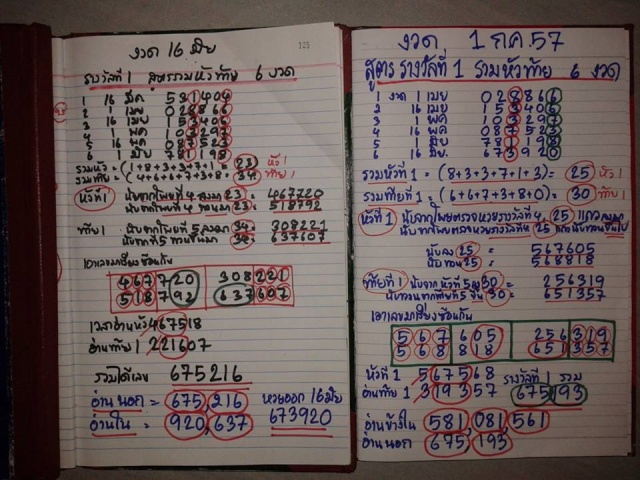 งวด 16 มิย
125
รางวัลที่ 1 สูตรรวมหัวท้าย 6 งวด
1 16 มีค 531404
2 1 เมย 028866
3 16 เมย 153406
4 1 พค 103297
5 16 พค 087523
6 1 มิย 781198
รวมหัว = (1+8+3+3+7+1) = 23 หัว 1
รวมท้าย = (4+6+6+7+3+8) = 34 ท้าย 1
หัวที่ 1 นับจากโพยที่ 4 ลงมา 23 = 467720
นับจากโพยที่ 4 ย้อนมา 23 = 518792
ท้าย 1 นับจากโพยที่ 5 ลงมา 34 = 308221
นับจากที่ 5 ทวนขึ้นมา 34 = 637607
เอาเลขมาเรียงซ้อนกัน
467720 308221
518792 637607
เวลาอ่านหัว 467518
อ่านท้าย 1 221607
รวมได้เลข 675216
อ่านนอก = 675,216 หวยออก 16 มิย
อ่านใน = 920,637 673920
งวด 1 กค.57
สูตร รางวัลที่ 1 รวมหัวท้าย 6 งวด
1 งวด 1 เมย 028866
2 16 เมย 153406
3 1 พค 103297
4 16 พค 087523
5 1 มิย 781198
6 16 มิย. 673920
รวมหัวที่ 1 = (8+3+3+7+1+3) = 25 หัว 1
รวมท้ายที่ 1 = (6+6+7+3+8+0) = 30 ท้าย 1
หัวที่ 1 นับจากโพยตรวจหวยรางวัลที่ 4, 25
นับจากโพยตรวจหวยรางวัลที่ 4 25
นับลง 25 = 567605
นับทวน 25 = 568818
ท้ายที่ 1 นับจากหัวที่ 5 ลง 30 = 256319
นับทวนจากท้ายที่ 5 ขึ้น 30 = 651357
เอาเลขมาเรียงซ้อนกัน
567605 256319
568818 651357
หัวที่ 1 567568 รางวัลที่ 1 รวม
อ่านท้าย 1 319357 675193
อ่านข้างใน 581,081,561
อ่านนอก 675,193